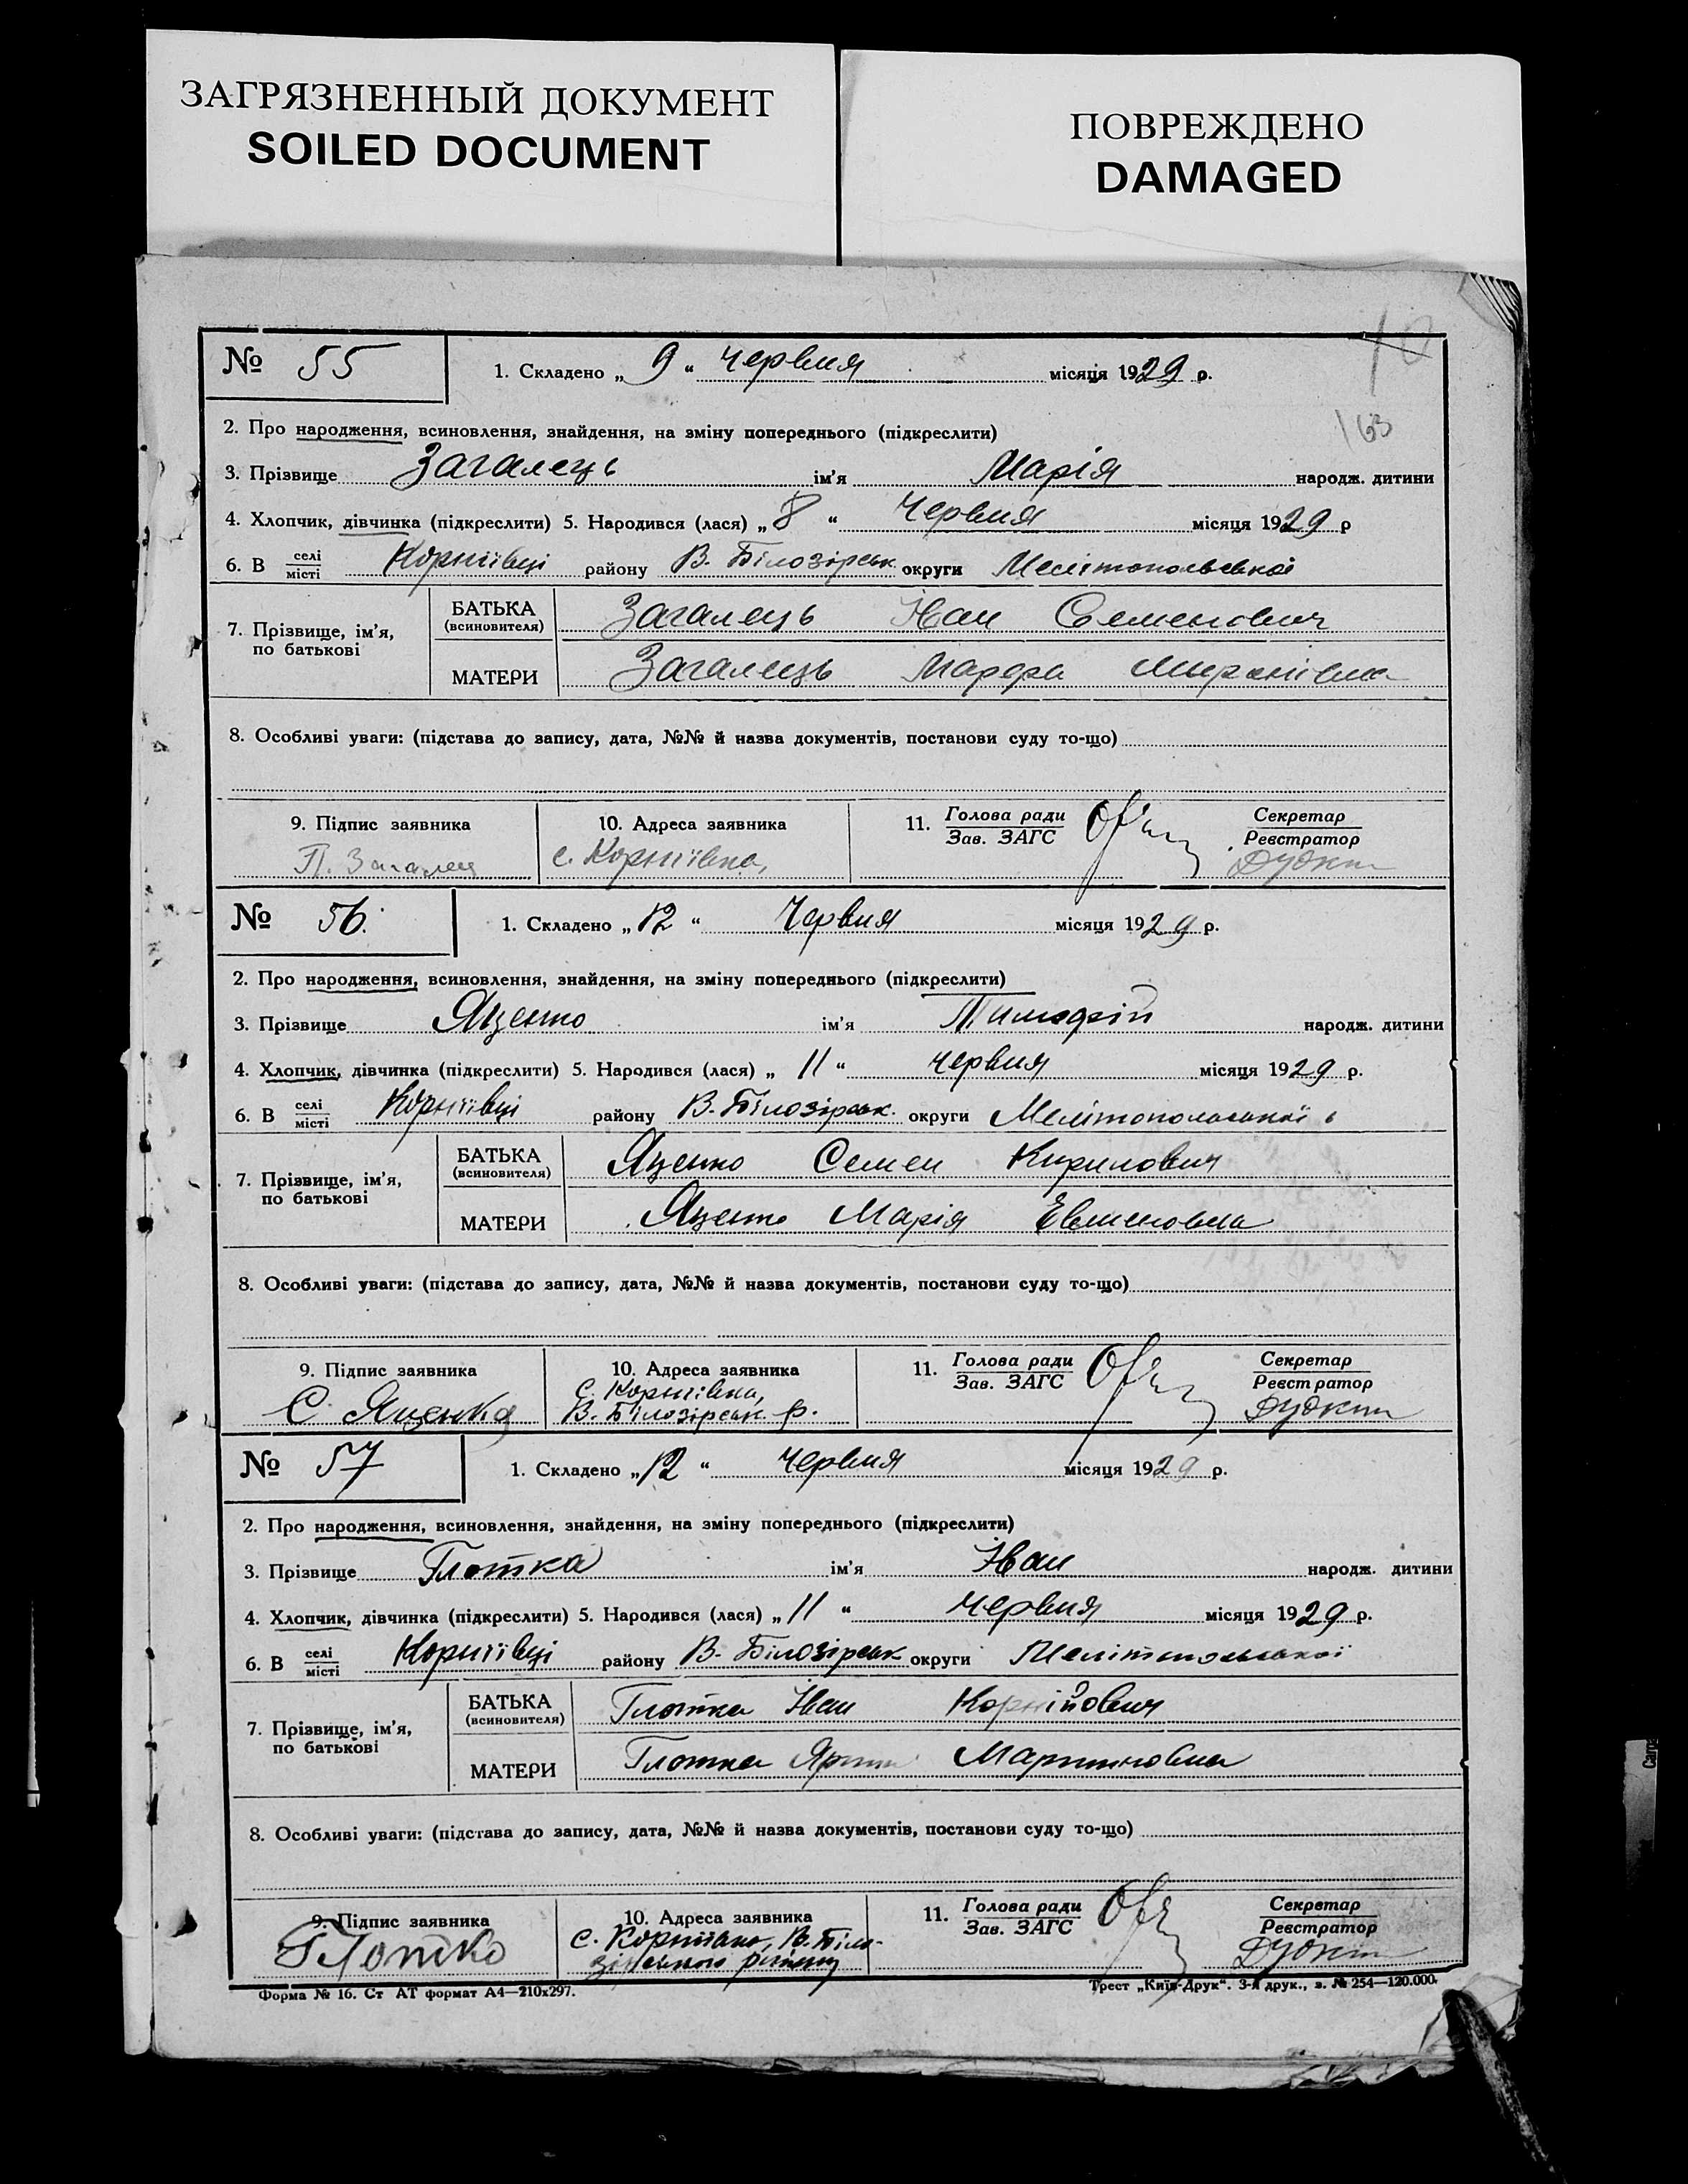 ЗАГРЯЗНЕННЫЙ ДОКУМЕНТ
SOILED DOCUMENT
ПОВРЕЖДЕНО
DAMAGED
10
163
№ 55 1. Складено „ 9 “ червня місяця 1929 р.
2. Про народження, всиновлення, знайдення, на зміну попереднього (підкреслити)
3. Прізвище Загалець ім’я Марія народж. дитини
4. Хлопчик, дівчинка (підкреслити) 5. Народився (лася) „ 8 “ Червня місяця 1929 р
6. В селі місті Корніївці району В. Білозірськ округи Мелітопольської
7. Прізвище, ім’я, по батькові
БАТЬКА (всиновителя) Загалець Іван Семенович
МАТЕРИ Загалець Марфа Миронівна
8. Особливі уваги: (підстава до запису, дата, №№ й назва документів, постанови суду то-що)
9. Підпис заявника 10. Адреса заявника 11. Голова ради Зав. ЗАГС Секретар Реєстратор
П. Загалец с. Корніївка,
№ 56. 1. Складено „ 12 “ Червня місяця 1929 р.
2. Про народження, всиновлення, знайдення, на зміну попереднього (підкреслити)
3. Прізвище Яценко ім’я Тимофій народж. дитини
4. Хлопчик, дівчинка (підкреслити) 5. Народився (лася) „ 11 “ червня місяця 1929 р.
6. В селі місті Корніївці району В. Білозірськ. округи Мелітопольської
7. Прізвище, ім’я, по батькові
БАТЬКА (всиновителя) Яценко Семен Кирилович
МАТЕРИ Яценко Марія
8. Особливі уваги: (підстава до запису, дата, №№ й назва документів, постанови суду то-що)
9. Підпис заявника 10. Адреса заявника 11. Голова ради Зав. ЗАГС Секретар Реєстратор
С. Яценко с. Корніївка,
В. Білозірськ. р.
№ 57 1. Складено „ 12 “ червня місяця 1929 р.
2. Про народження, всиновлення, знайдення, на зміну попереднього (підкреслити)
3. Прізвище Глотка ім’я Іван народж. дитини
4. Хлопчик, дівчинка (підкреслити) 5. Народився (лася) „ 11 “ червня місяця 1929 р.
6. В селі місті Корніївці району В. Білозірськ округи Мелітопольської
7. Прізвище, ім’я, по батькові
БАТЬКА (всиновителя) Глотка Іван Корнійович
МАТЕРИ Глотка Мартиновна
8. Особливі уваги: (підстава до запису, дата, №№ й назва документів, постанови суду то-що)
9. Підпис заявника 10. Адреса заявника 11. Голова ради Зав. ЗАГС Секретар Реєстратор
Глотко с. Корніївка, В. Біло-
зірського району
Форма № 16. Ст АТ формат А4—210х297. Трест „Київ-Друк“. 3-я друк., з. № 254—120.000.